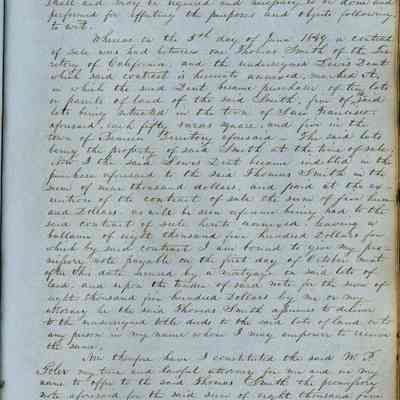 shall and may be required and necessary to be done and
performed for effecting the purposes and objects following
to wit.
Whereas on the 5th day of June 1849 a contract
of sale was had between one Thomas Smith of the Ter
ritory of California, and the undersigned Lewis Dent
which said contract is hereunto annexed, marked A,
in which the said Dent became purchaser of ten lots
or parcels of land of the said Smith, five of said
lots being situated in the town of San Francisco
aforesaid, each fifty varas square, and five in the
town of Benicia Territory aforesaid — The said lots
being the property of said Smith at the time of sale.
Now I the said Lewis Dent became indebted in the
purchase aforesaid to the said Thomas Smith in the
sum of nine thousand dollars, and paid at the ex-
ecution of the contract of sale the sum of five hun
dred Dollars. as will be seen reference being had to the
said contract of sale hereto annexed, leaving a
balance of eight thousand five hundred Dollars for
which by said contract I am bound to give my pro-
missory note payable on the first day of October next
after this date secured by a mortgage on said lots of
land, and upon the tender of said note for the sum of
eight thousand five hundred Dollars by me or my
attorney he the said Thomas Smith agrees to deliver
to the undersigned title deeds to the said lots of land or to
any person in my name whom I may empower to receive
the same.
Now therefore have I constituted the said W. F.
my true and lawful attorney for me and in my
name to offer to the said Thomas Smith the promissory
note aforesaid for the said sum of eight thousand five